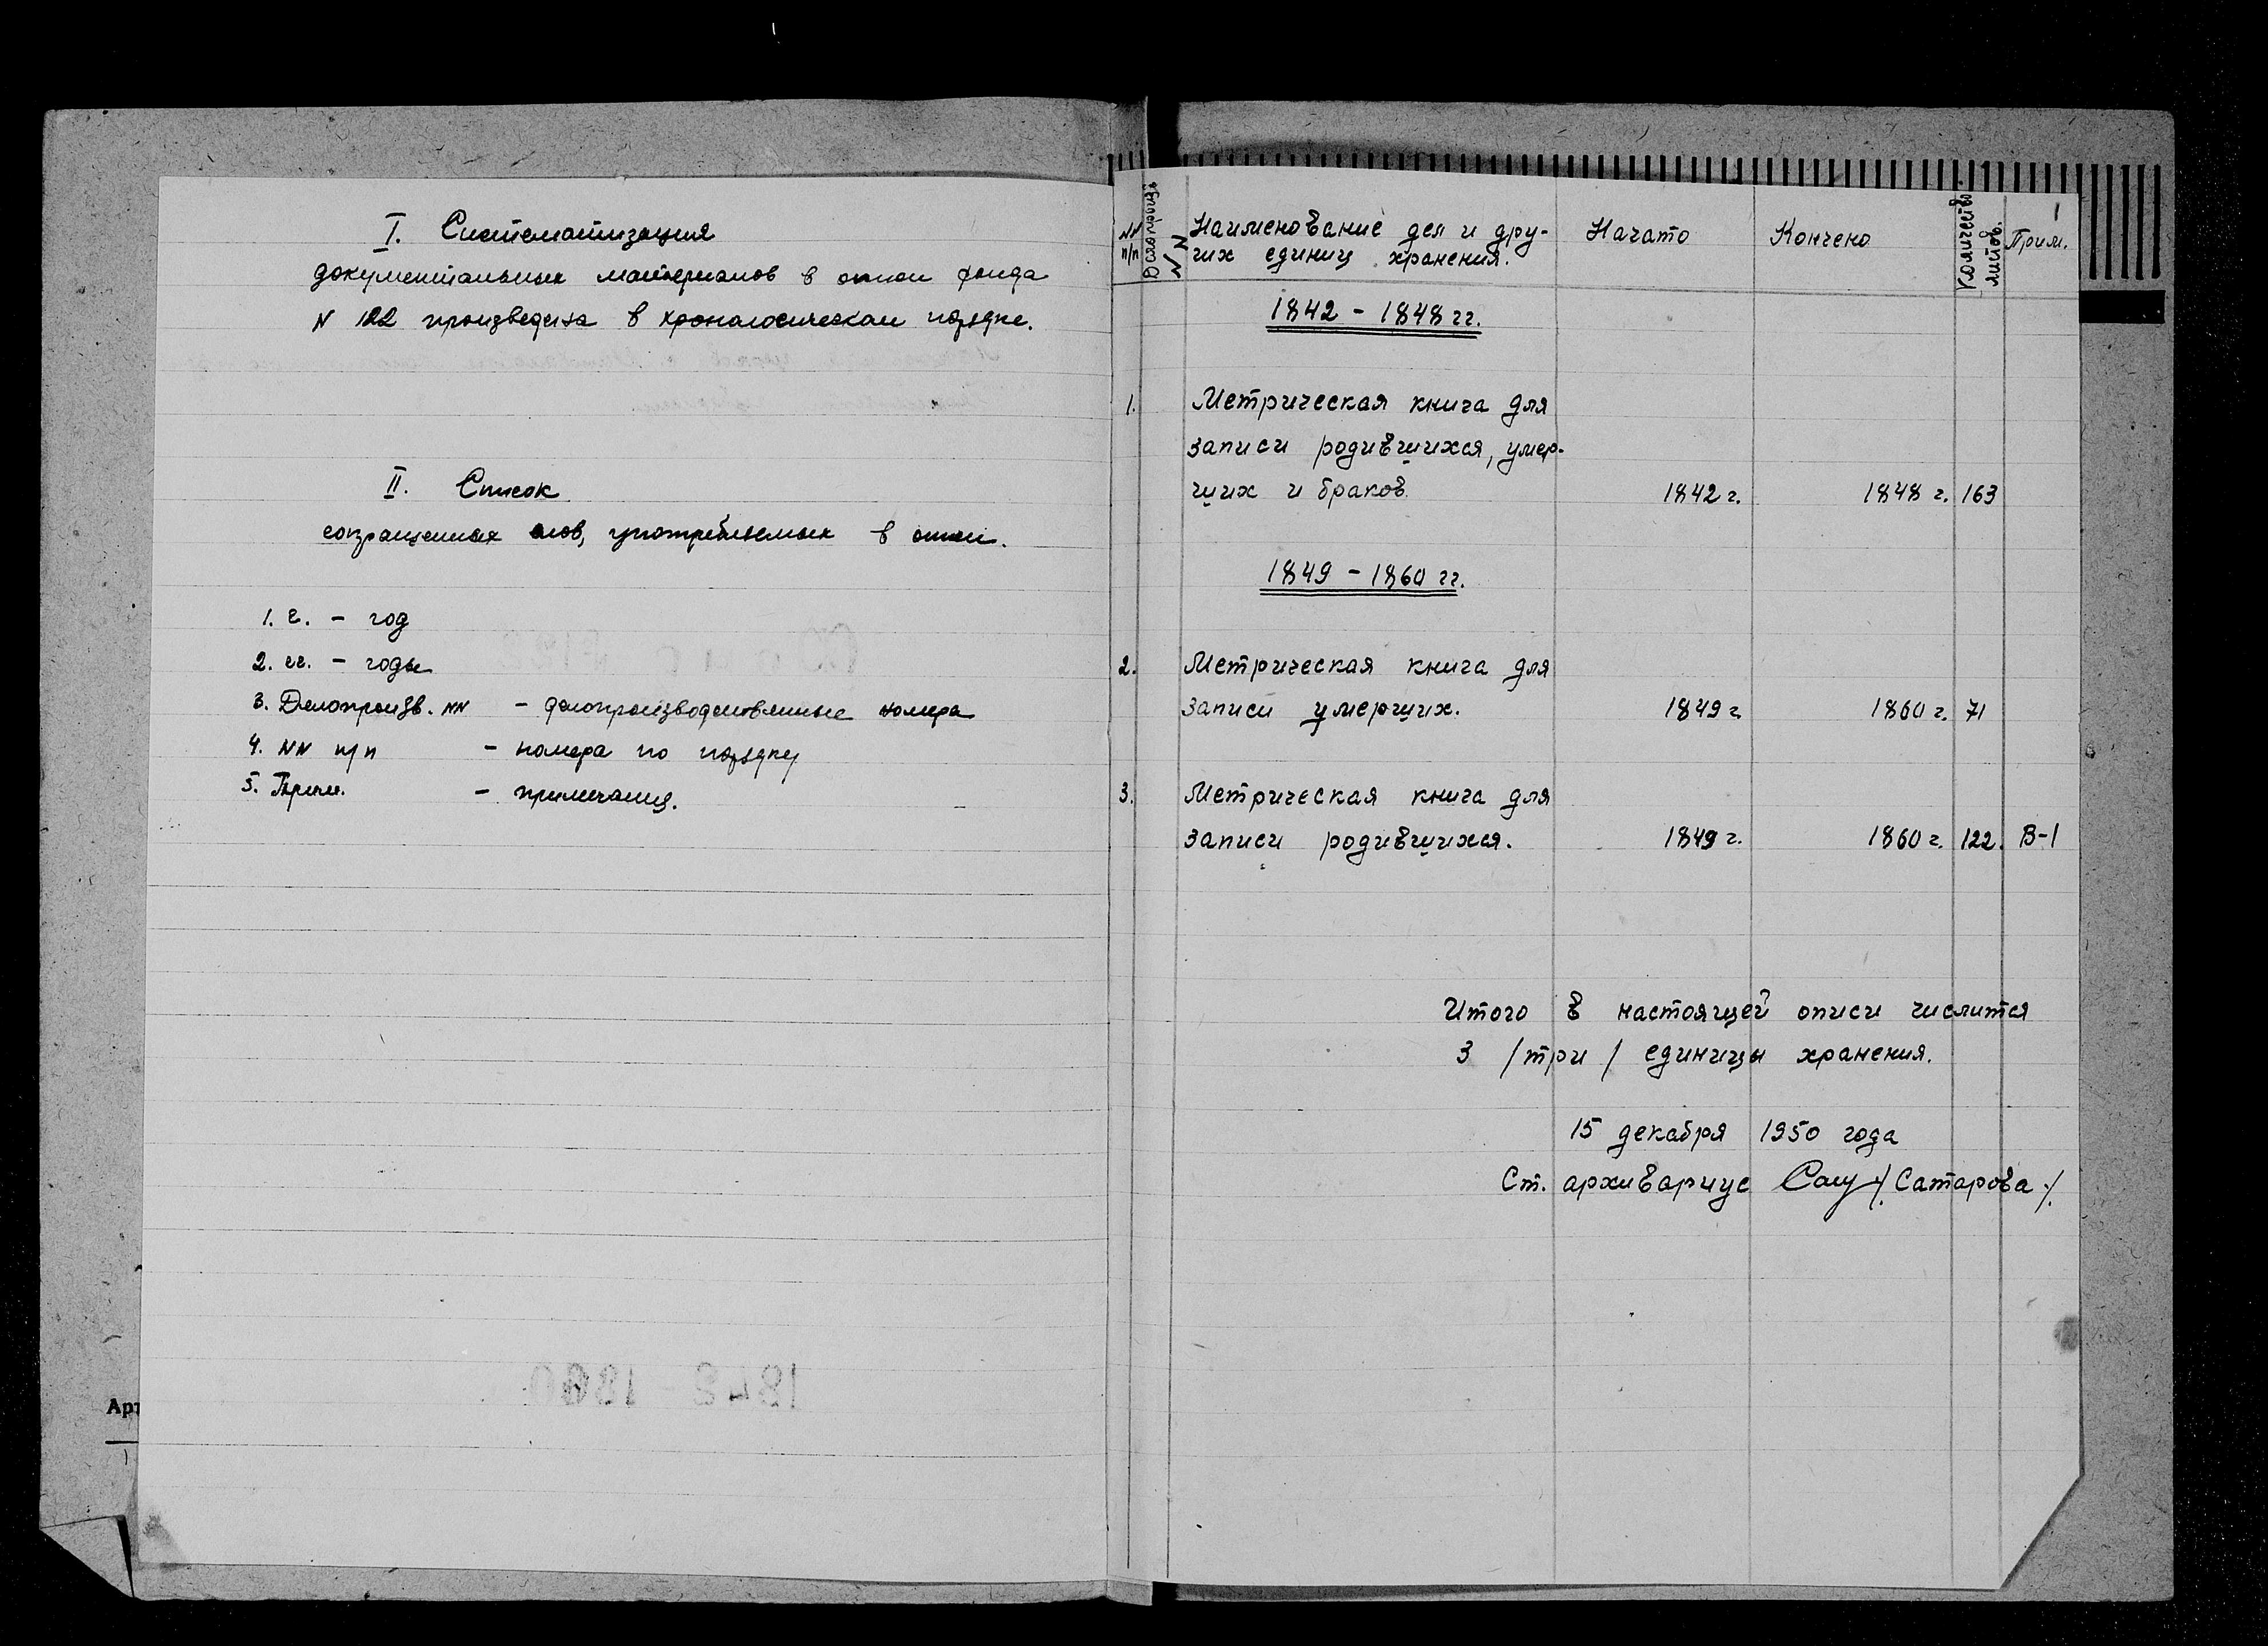 I. Систематизация
документальных материалов в описи фонда
N 122 произведена в хронологическом порядке.
II. Список
сокращенных слов, употребляемых в описи.
1. г. - год
2. гг. - годы
3. Делопроизв. NN - делопроизводственные номера
4. NN п/п - номера по порядку
5. Прим. - примечания.
Арт
1842 - 1860
1
NN п/п
Делопроизв. NN
Наименование дел и дру-
гих единиц хранения.
Начато
Кончено
Количество листов.
Прим.
1842 - 1848 гг.
1. Метрическая книга для
записи родившихся, умер-
ших и браков. 1842 г. 1848 г. 163
1849 - 1860 гг.
2. Метрическая книга для
записи умерших. 1849 г. 1860 г. 71
3. Метрическая книга для
записи родившихся. 1849 г. 1860 г. 122. В-1
Итого в настоящей описи числится
3 /три/ единицы хранения.
15 декабря 1950 года
Ст. архивариус /Сатарова/.